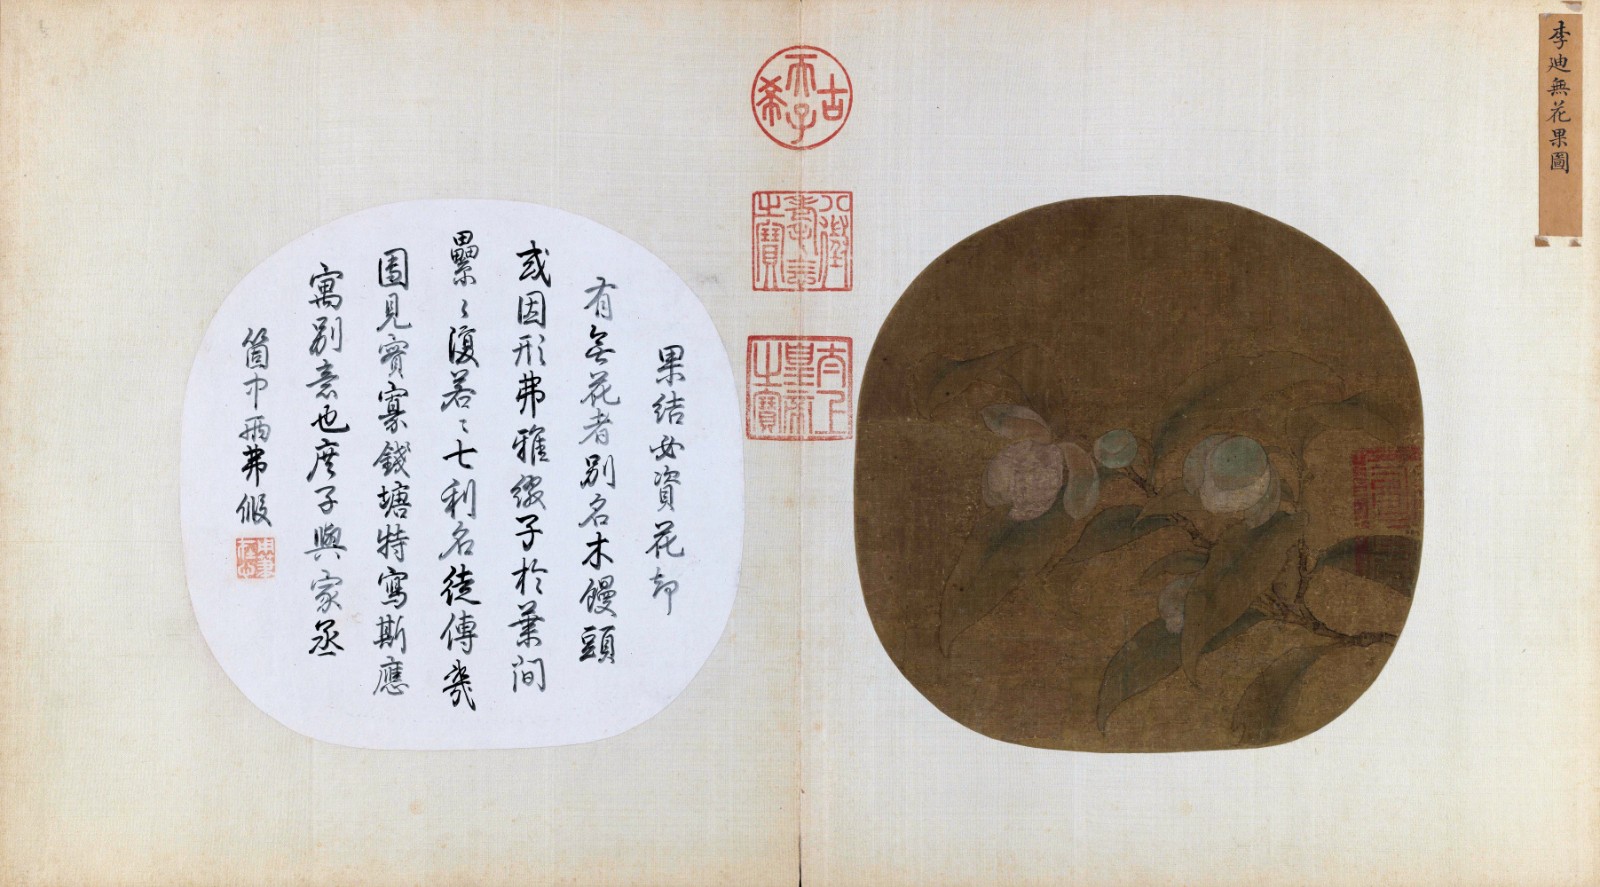 李迪無花果圖
古希天子
八徵耄念之寶
太上皇帝之寶
果結必資花却
有無花者别名木饅頭
或因形弗雅綴子於葉間
纍〻復若〻七利名徒傳幾
圖見實寡錢塘特寫斯應
寓别意也庶子與家丞
箇中兩弗假
用筆在心